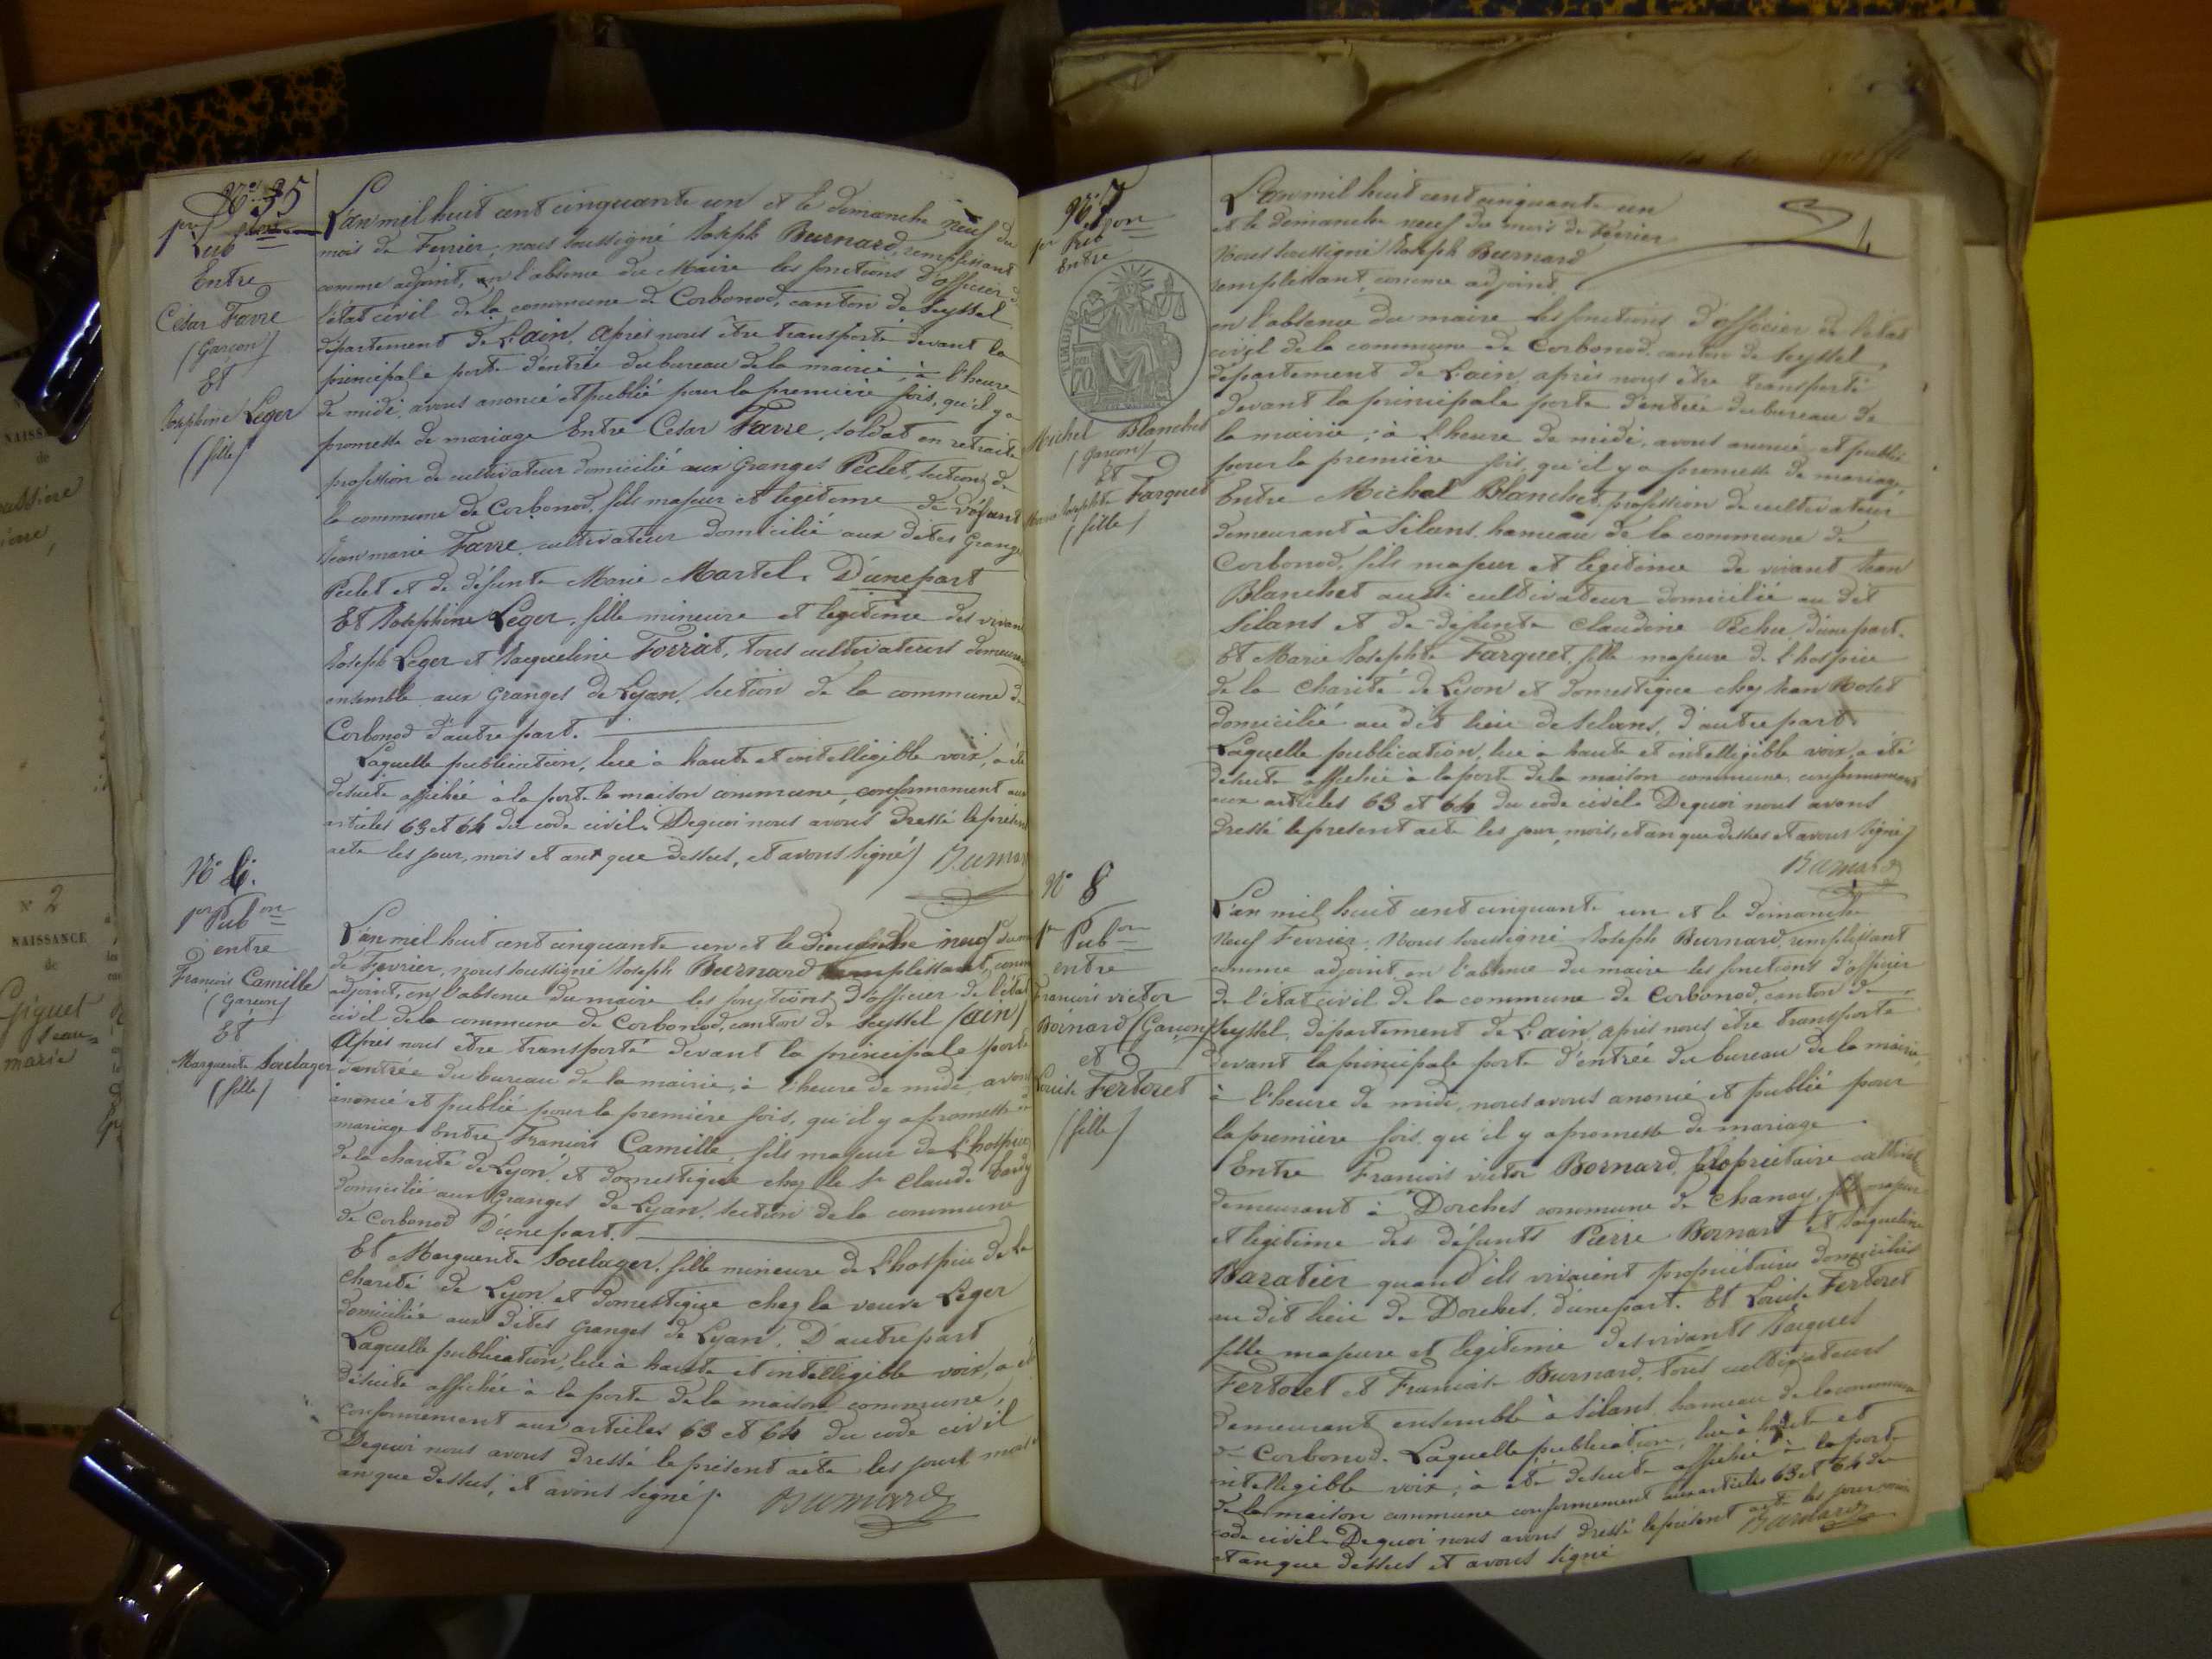 N° 5
pre Pubon
Entre
César Favre
(Garcon)
Et
Josephine Leger
(fille)
L'an mil huit cent cinquante un et le dimanche neuf du
mois de Fevrier, nous soussigné Joseph Burnard, remplissant
comme adjoint, en l'absence du Maire les fonctions d'officier de
l'état civil de la commune de Corbonod, canton de Seyssel
département de L'ain, Après nous être transporté devant la
principale porte d'entrée du bureau de la mairie, à l'heure
de midi, avons anoncé et publié pour la première fois, qu'il y a
promesse de mariage Entre César Favre, soldat en retraite
profession de cultivateur domicilié aux Granges Peclet, section de
la commune de Corbonod, fils majeur et légitime de défunt
Jean marie Favre, cultivateur domicilié aux dites Granges
Peclet et de défunte Marie Martel. D'une part
Et Josephine Leger, fille mineure et legitime des vivans
Joseph Leger et Jacqueline Forrat, tous cultivateurs demeurant
ensemble aux Granges de Lyan, section de la commune de
Corbonod d'autre part.
Laquelle publication, lue à haute et intelligible voix, a été
desuite affichée à la porte la maison commune, conformement aux
articles 63 et 64 du code civil. Dequoi nous avons dressé le présent
acte les jour, mois et an que dessus, et avons signé) Burnard
N° 6.
pre Pubon
entre
Francois Camille
(Garcon)
Et
Marguerite Soulager
(fille)
L'an mil huit cent cinquante un et le dimanche neuf du mois
de Fevrier, nous soussigné Joseph Burnard remplissant, comme
adjoint, en l'absence du maire les fonctions d'officier de l'état
civil de la commune de Corbonod, canton de Seyssel (ain)
Après nous être transporté devant la principale porte
d'entrée du bureau de la mairie, à l'heure de midi, avons
anoncé et publié pour la première fois, qu'il y a promesse de
mariage Entre Francois Camille, fils majeur de l'hospice
de la charité de Lyon, et domestique chez le Sr Claude
domicilié aux Granges de Lyan, section de la commune
de Corbonod D'une part.
Et Marguerite Soulager, fille mineure de L'hospice de la
Charité de Lyon et domestique chez la veuve Leger
domiciliée aux dites Granges de Lyan, D'autre part
Laquelle publication, lue à haute et intelligible voix, a été
desuite affichée à la porte de la maison commune,
conformement aux articles 63 et 64 du code civil
Dequoi nous avons dressé le présent acte les jour mois
an que dessus, et avons signé). Burnard
N° 7
pre Pubon
Entre
TIMBRE
Michel Blanchet
(garcon)
Et
Marie Josephte Farquet
(fille)
L'an mil huit cent cinquante un
et le dimanche neuf du mois de Fevrier
Nous soussigné Joseph Burnard
remplissant, comme adjoint
en l'absence du maire les fonctions d'officier de l'état
civil de la commune de Corbonod, canton de Seyssel
département de L'ain, après nous être transporté
devant la principale porte d'entrée du bureau de
la mairie, à l'heure de midi, avons anoncé et publié
pour la première fois, qu'il y a promesse de mariage
Entre Michel Blanchet, profession de cultivateur
demeurant à Silans, hameau de la commune de
Corbonod, fils majeur et legitime de vivant Jean
Blanchet aussi cultivateur domicilié au dit
Silans et de défunte Claudine Pechu, d'une part.
Et Marie Josephte Farquet, fille majeure de L'hospice
de la Charité de Lyon et domestique chez Jean Rolet
domicilié au dit lieu de Silans, d'autre part.
Laquelle publication, lue à haute et intelligible voix, a été
desuite affichée à la porte de la maison commune, conformement
aux articles 63 et 64 du code civil. Dequoi nous avons
dressé le present acte les jour, mois, et an que dessus et avons signé)
Burnard
N° 8
pre Pubon
entre
Francois victor
Bornard (Garcon)
et
Louise Fertoret
(fille)
L'an mil huit cent cinquante un et le dimanche
neuf Fevrier. Nous soussigné Joseph Burnard, remplissant
comme adjoint en l'absence du maire les fonctions d'officier
de l'état civil de la commune de Corbonod, canton de
Seyssel, département de L'ain, après nous être transporté
devant la principale porte d'entrée du bureau de la mairie
à l'heure de midi, nous avons anoncé et publié pour
la première fois qu'il y a promesse de mariage.
Entre Francois victor Bornard, propriétaire cultivateur
demeurant à Dorches commune de Chanay, fils majeur
et légitime des défunts Pierre Bornard et Jacqueline
Baratier quand ils vivaient propriétaires domiciliés
au dit lieu de Dorches, d'une part. Et Louise Fertoret
fille majeure et legitime des vivants Jacques
Fertoret et Francoise Burnard, tous cultivateurs
demeurant ensemble à Silans hameau de la commune
de Corbonod. Laquelle publication, lue à haute et
intelligible voix, a été desuite affichée à la porte
de la maison commune conformement aux articles 63 et 64 du
code civil. Dequoi nous avons dressé le présent acte les jour, mois
et an que dessus et avons signé Burnard
N° 2
NAISSANCE
de
Giguet
Jean=
marie